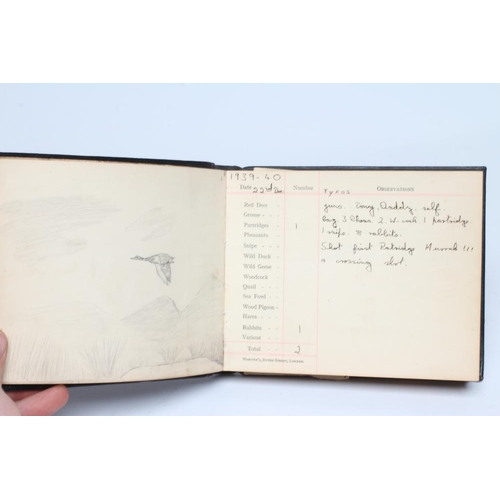 1939-40
Date 22nd Dec Number OBSERVATIONS
Red Deer
Grouse
Partridges 1
Pheasants
Snipe
Wild Duck
Wild Geese
Woodcock
Quail
Sea Fowl
Wood Pigeon
Hares
Rabbits 1
Various
Total 2
guns. Tony, Daddy, self
bag. 3 2 1 partridge.
1 snipe. rabbits.
Shot first Patridge Hurrah !!!
a crossing shot.